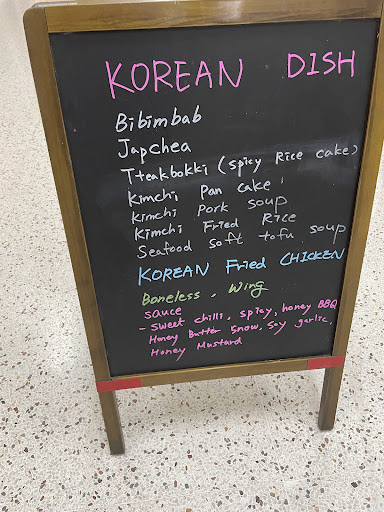 KOREAN DISH
Bibimbab
Japchea
Tteakbokki (spicy Rice cake)
Kimchi Pan cake
Kimchi Pork soup
Kimchi Fried Rice
Seafood soft tofu soup
KOREAN Fried CHICKEN
Boneless, Wing
sauce
- sweet chilli, spicy, honey BBQ
Honey Butter Snow, Soy garlic,
Honey Mustard